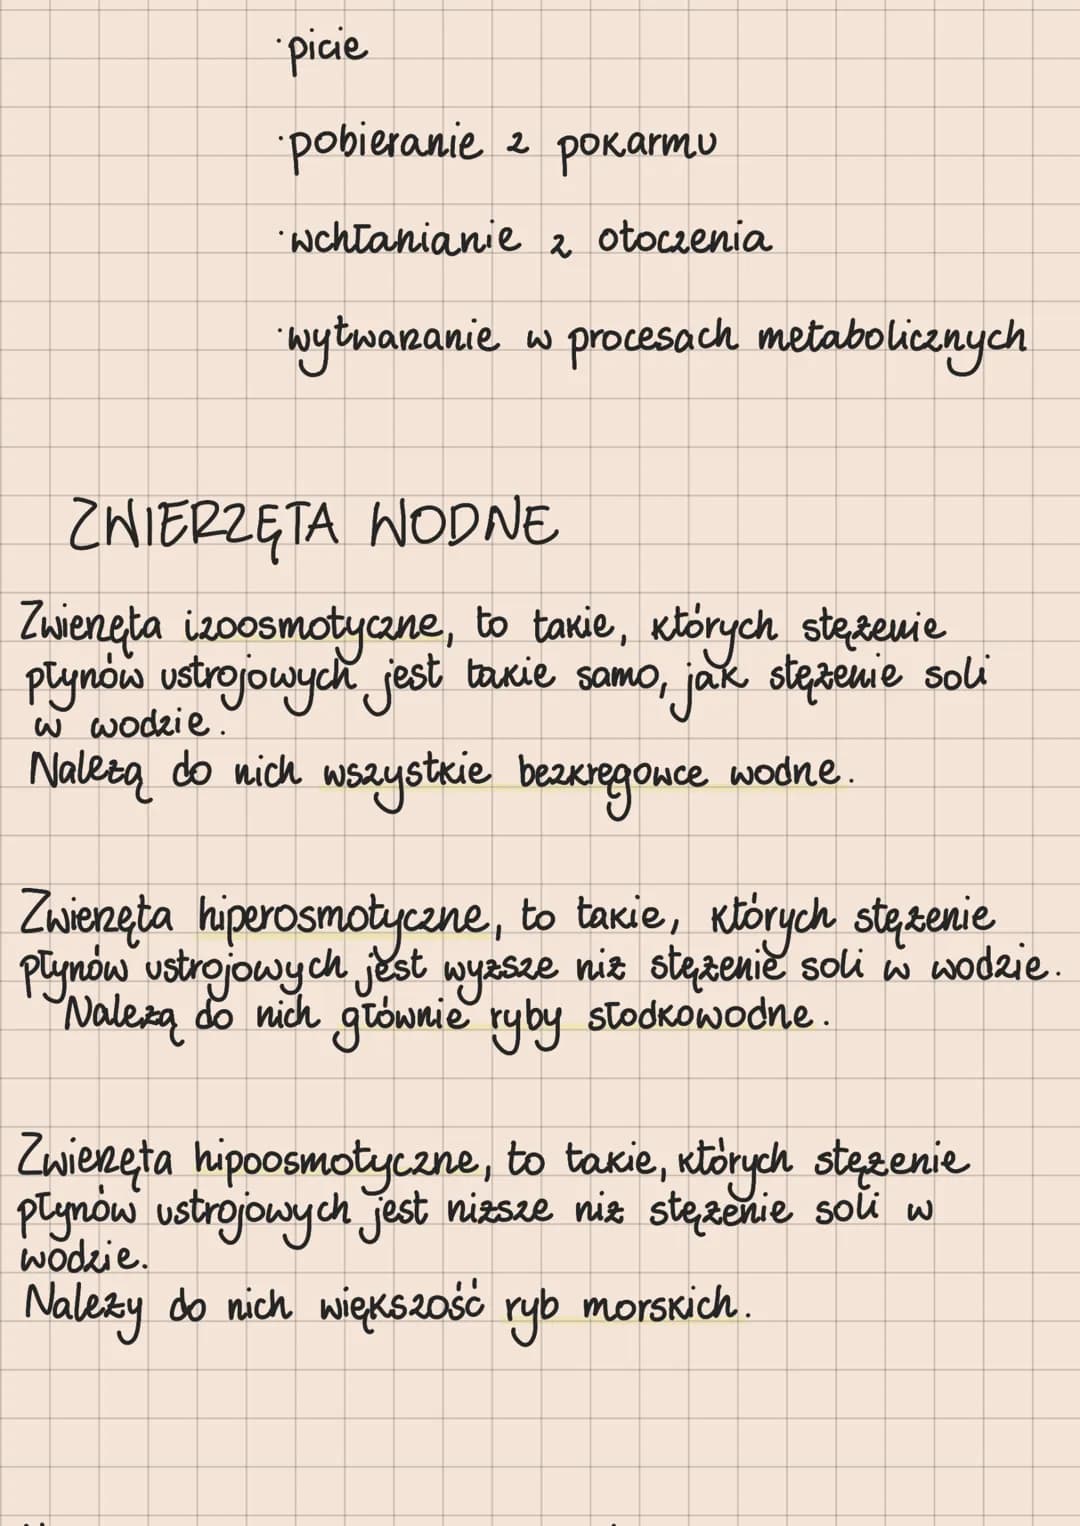 ·picie
·pobieranie z pokarmu
·wchłanianie z otoczenia
·wytwarzanie w procesach metabolicznych
ZWIERZĘTA WODNE
Zwierzęta izoosmotyczne, to takie, których stężenie
płynów ustrojowych jest takie samo, jak stężenie soli
w wodzie.
Należą do nich wszystkie bezkręgowce wodne.
Zwierzęta hiperosmotyczne, to takie, których stężenie
płynów ustrojowych jest wyższe niż stężenie soli w wodzie.
Należą do nich głównie ryby słodkowodne.
Zwierzęta hipoosmotyczne, to takie, których stężenie
płynów ustrojowych jest niższe niż stężenie soli w
wodzie.
Należy do nich większość ryb morskich.